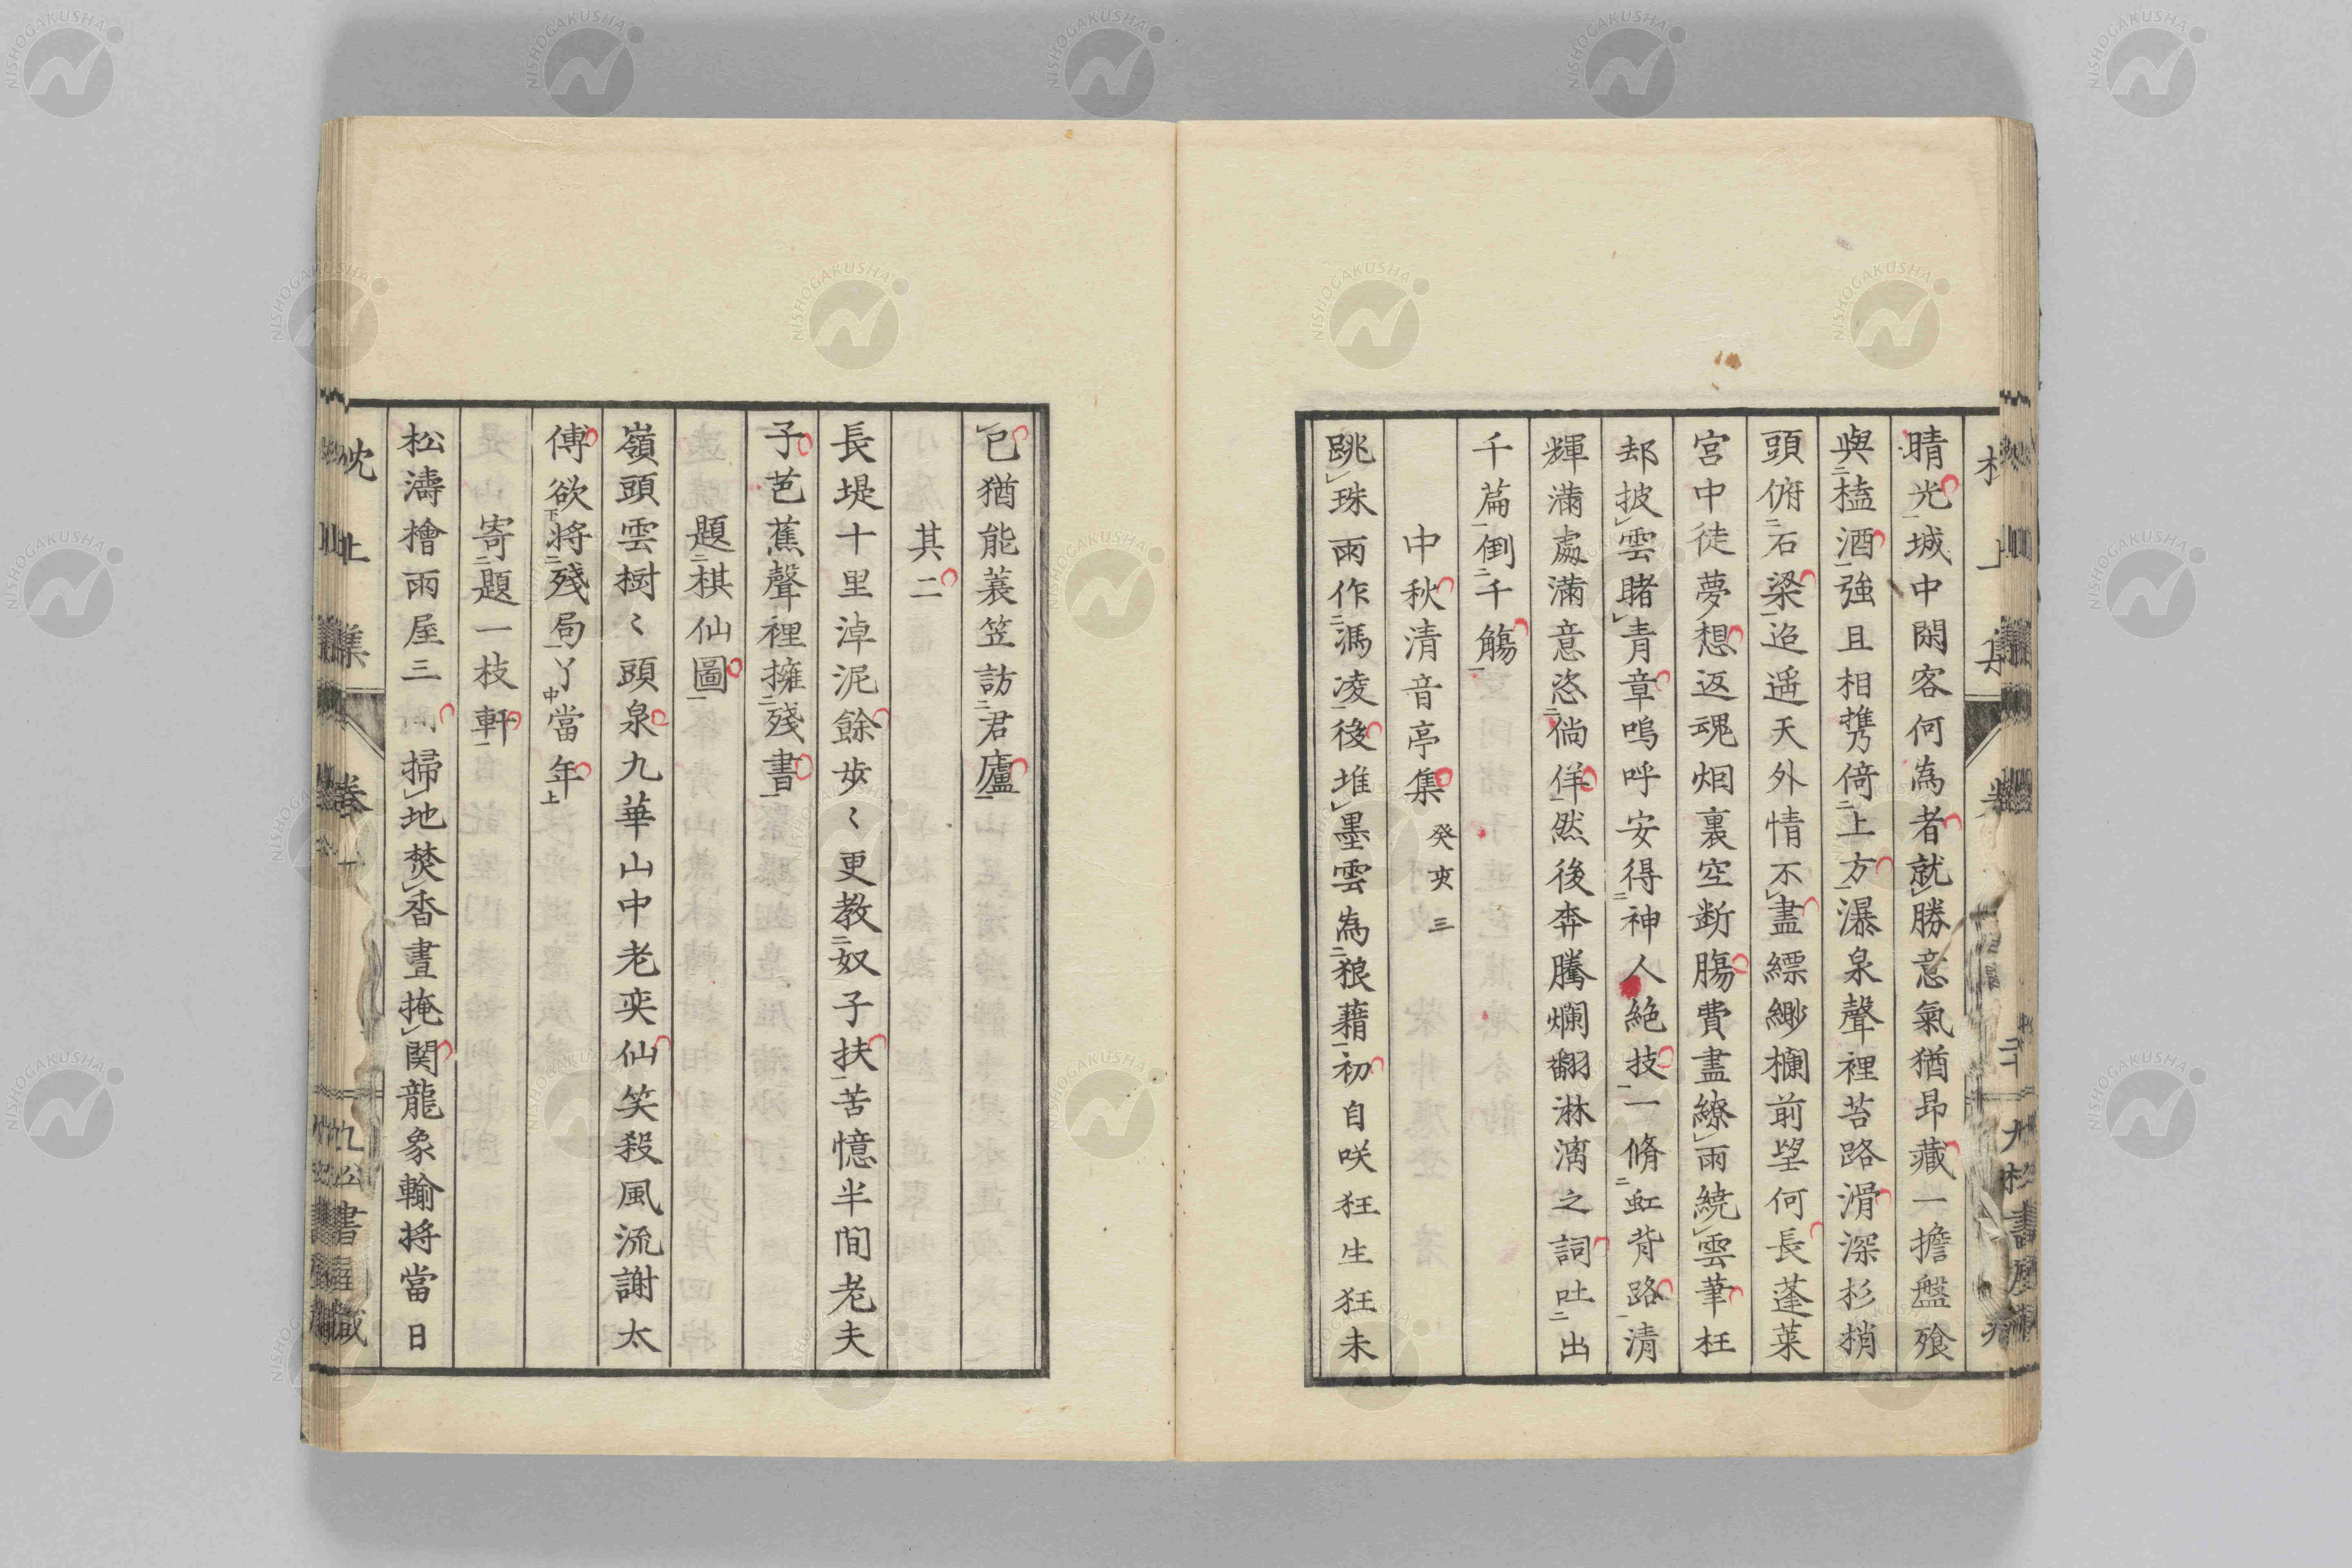 晴光城中閑客何為者就勝意氣猶昂藏一擔盤飧
與榼酒強且相携倚上方瀑泉聲裡苔路滑深杉梢
頭俯石梁迢遥天外情不盡縹緲欄前望何長蓬萊
宮中徒夢想返魂烟裏空斷腸費盡繚雨繞雲筆枉
却披雲睹青章嗚呼安得神人絶技一脩虹背路清
輝滿處滿意恣徜徉然後奔騰爛翻淋漓之詞吐出
千篇倒千觴
中秋清音亭集 癸亥三
跳珠雨作馮凌後堆墨雲為狼藉初自咲狂生狂未
已猶能蓑笠訪君廬
其二
長堤十里淖泥餘步〻更教奴子扶苦憶半間老夫
子芭蕉聲裡擁殘書
題棋仙圖
嶺頭雲樹〻頭泉九華山中老奕仙笑殺風流謝太
傅欲將殘局了當年
寄題一枝軒
松濤檜雨屋三間掃地焚香晝掩関龍象輸将當日
NISHOGAKUSHA